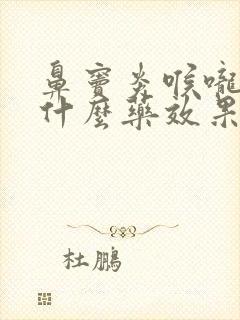 鼻竇炎喉嚨
什麼藥效果
杜鵬